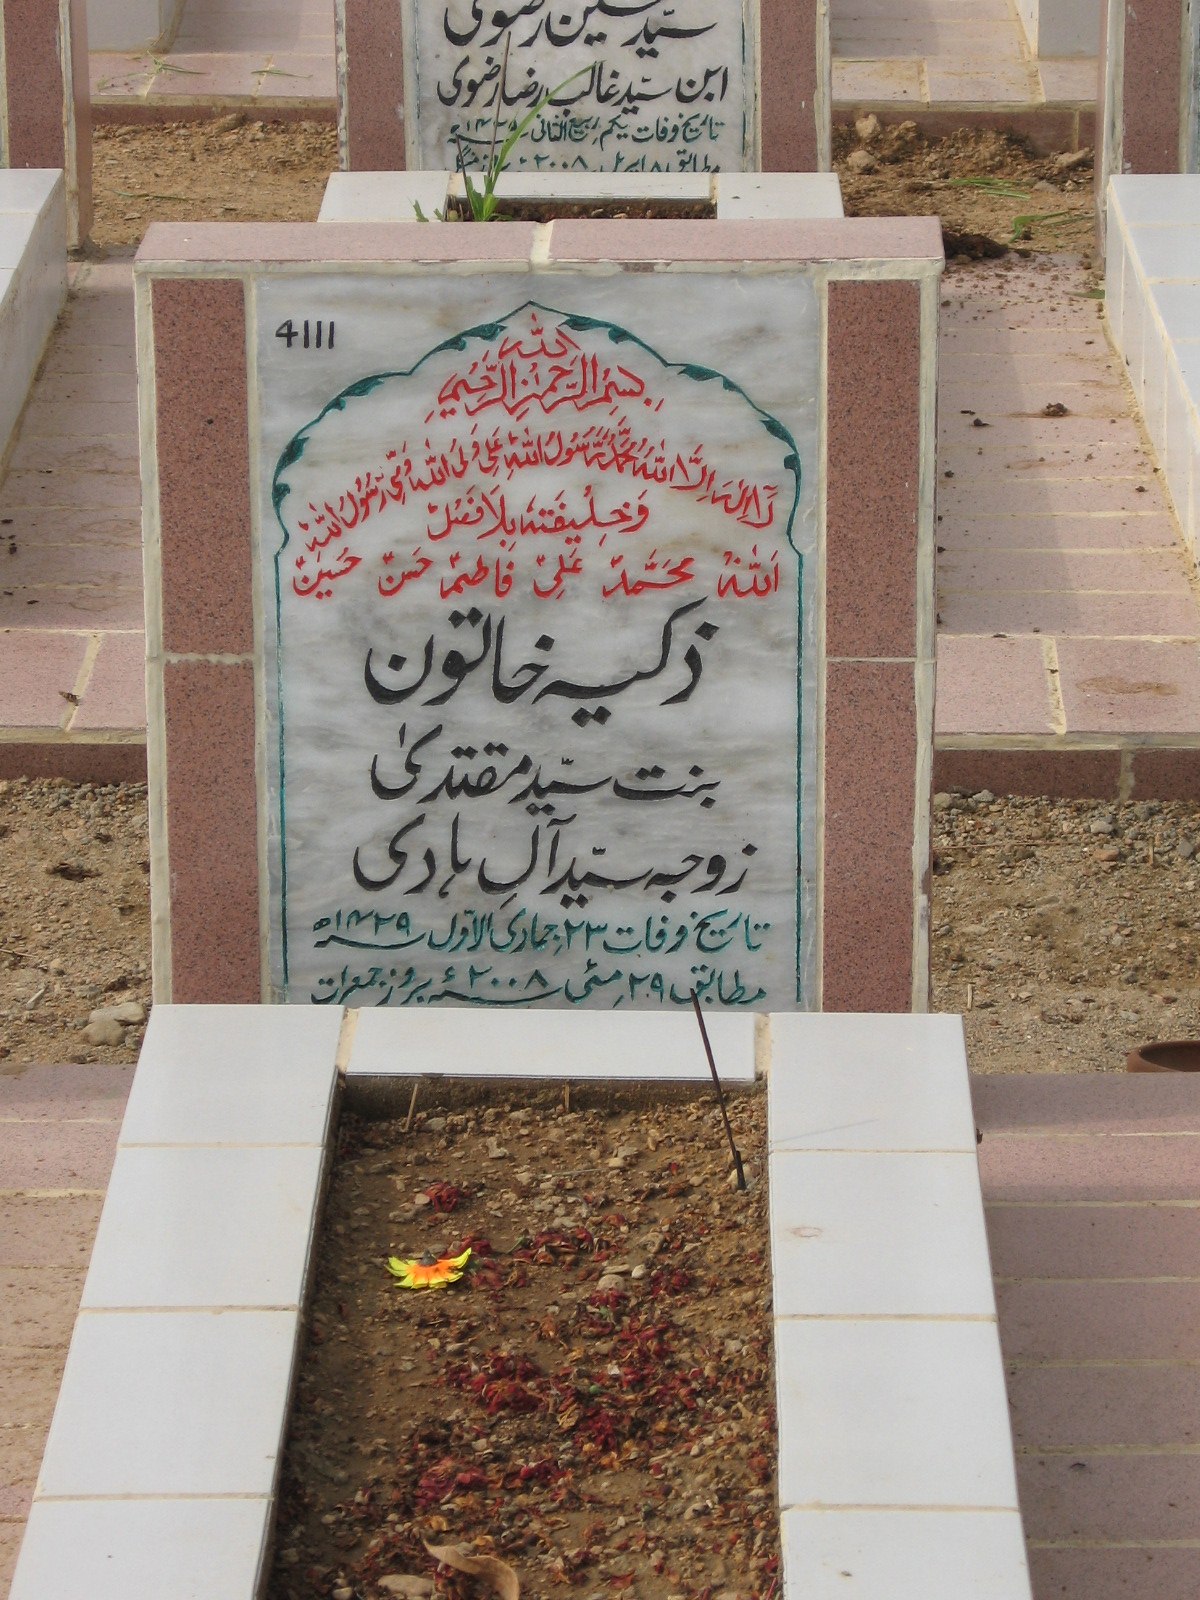 سیّد حسین رضوی
ابن سیّد غالب رضا رضوی
تاریخ وفات یکم ربیع الثانی
مطابق ۸ اپریل ۲۰۰۸ء بروز
4111
بِسْمِ اللہ الرَّحْمٰنِ الرَّحِیْمِ
لَآ اِلٰہَ اِلَّا اللہُ مُحَمَّدٌ رَّسُوْلُ اللہِ عَلِیٌّ وَلِیُّ اللہِ وَصِیُّ رَسُوْلُ اللہِ
وَخَلِیْفَتُہٗ بِلَا فَصْلْ
اَللہُ مُحَمَّدؐ عَلِیؑ فَاطِمہؑ حَسَنؑ حُسَینؑ
ذکیہ خاتون
بنت سیّد مقتدیٰ
زوجہ سیّد آلِ ہادی
تاریخ وفات ۲۳ جمادی الاوّل ۱۴۲۹ھ
مطابق ۲۹ مئی ۲۰۰۸ء بروز جمعرات